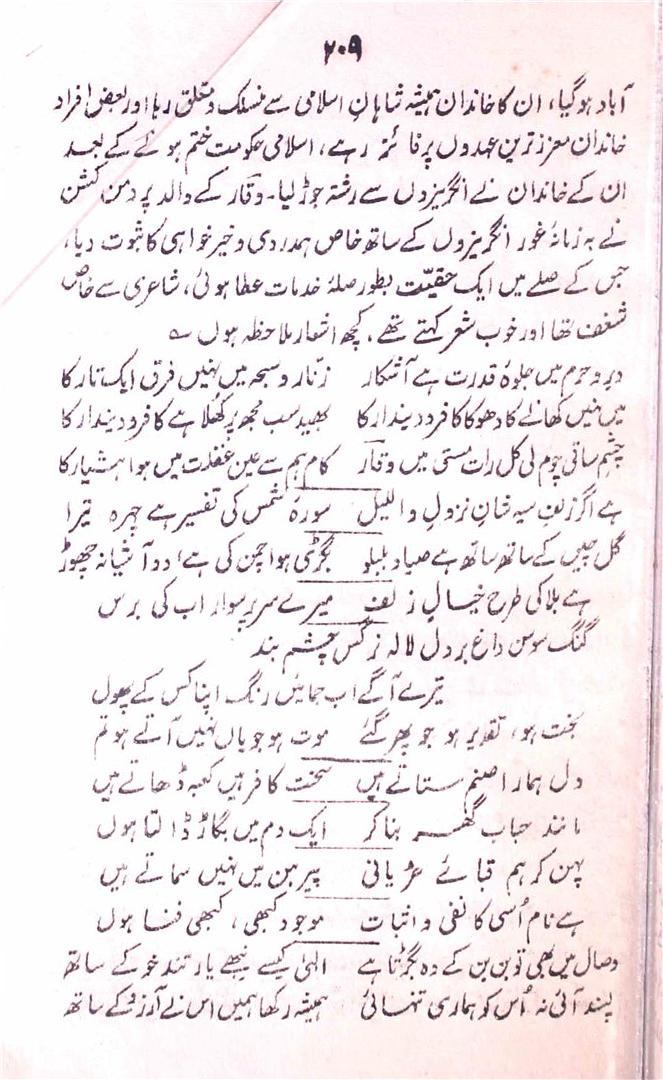 ۲۰۹
آباد ہوگیا، ان کا خاندان ہمیشہ شاہانِ اسلامی سے منسلک و متعلق رہا اور بعض افراد
خاندان معزز ترین عہدوں پر فائز رہے، اسلامی حکومت ختم ہونے کے بعد
ان کے خاندان نے انگریزوں سے رشتہ جوڑ لیا۔ وقار کے والد پردمن کشن
نے بہ زمانۂ غدر انگریزوں کے ساتھ خاص ہمدردی و خیر خواہی کا ثبوت دیا،
جس کے صلے میں ایک حقیّت بطور صلۂ خدمات عطا ہوئی، شاعری سے خاص
شغف تھا اور خوب شعر کہتے تھے، کچھ اشعار ملاحظہ ہوں ؎
دیر و حرم میں جلوۂ قدرت ہے آشکار زنّار و سبحہ میں نہیں فرق ایک تار کا
میں نہیں کھانے کا دھوکا کافر و دیندار کا بھید سب مجھ پر کھلا ہے کافر و دیندار کا
چشمِ ساقی چوم لی کل رات مستی میں وقار کام ہم سے عین غفلت میں ہوا ہشیار کا
ہے اگر زلفِ سیہ شانِ نزولِ واللیل سورۂ شمس کی تفسیر ہے چہرہ تیرا
گل چیں کے ساتھ ساتھ ہے صیاد بلبلو بگڑی ہوا چمن کی ہے اد دآشیانہ چھوڑ
ہے بلا کی طرح خیالِ زلف میرے سر پر سوار اب کی برس
گنگ سوسن داغ بر دل لالہ نرگس چشم بند
تیرے آگے اب جمائیں رنگ اپنا کس کے پھول
بخت ہو، تقدیر ہو جو پھر گئے موت ہو جو یاں نہیں آتے ہو تم
دل ہمارا صنم ستاتے ہیں سخت کافر ہیں کعبہ ڈھاتے ہیں
مانند حباب گھر بنا کر ایک دم میں بگاڑ ڈالتا ہوں
پہن کر ہم قبائے عریانی پیرہن میں نہیں سماتے ہیں
ہے نام اُسی کا نفی و اثبات موجود کبھی، کبھی فنا ہوں
وصال میں بھی تو بن بن کے وہ بگڑتا ہے الہیٰ کیسے نبھے یار تند خو کے ساتھ
پسند آئی نہ اُس کو ہماری تنہائی ہمیشہ رکھا ہمیں اس نے آرزو کے ساتھ